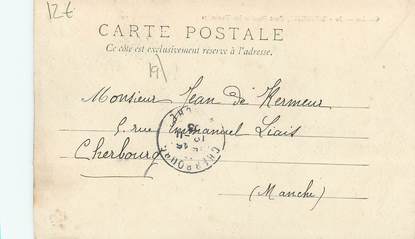 12€
CARTE POSTALE
Ce côté est exclusivement réservé à l'adresse.
19
Monsieur Jean de Kermeur
5. rue Emmanuel Liais
Cherbourg
(Manche)
CHERBOURG